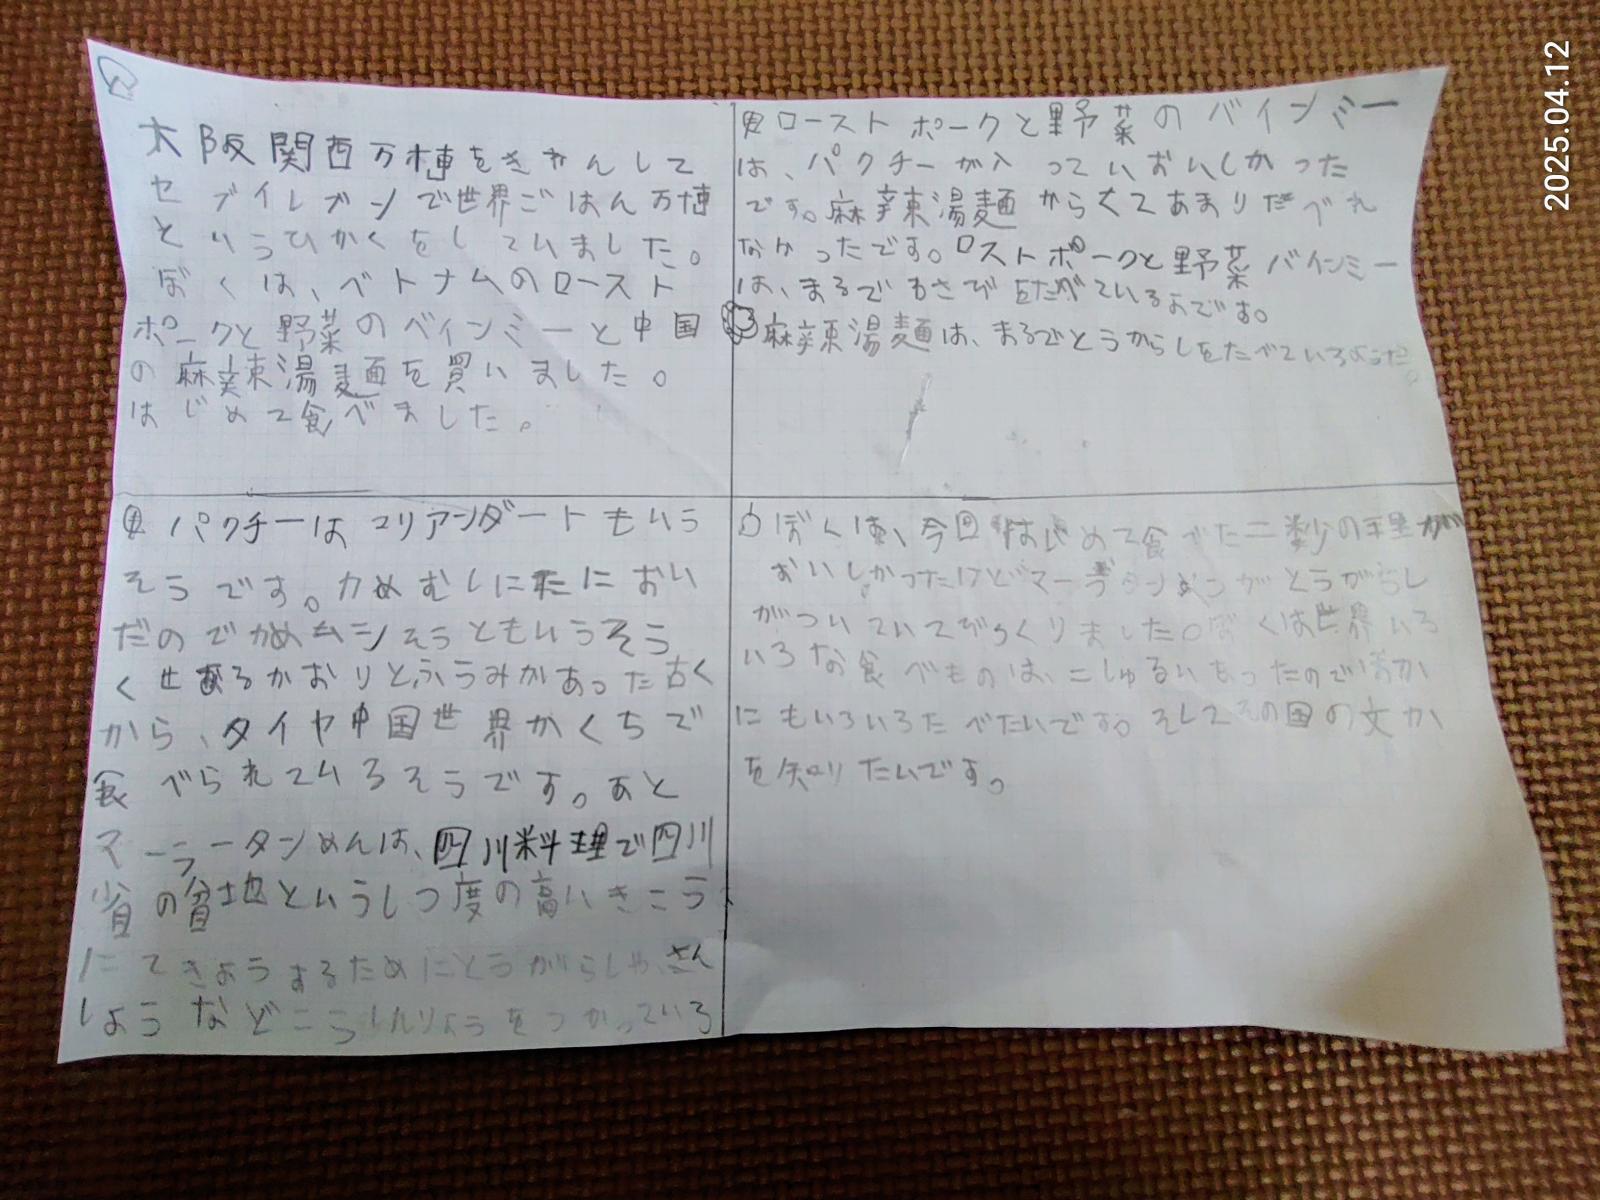 大阪関西万博をきねんして
セブイレブンで世界ごはん万博
というひかくをしていました。
ぼくは、ベトナムのロースト
ポークと野菜のベインミーと中国
の麻辣湯麺を買いました。
はじめて食べました。
ローストポークと野菜のバインミー
は、パクチーが入っていおいしかった
です。麻辣湯麺からくてあまりたべれ
なかったです。ロストポークと野菜バインミー
は、まるでわさびをたべているよです。
麻辣湯麺は、まるでとうがらしをたべているようだ。
パクチーはコリアンダートもいう
そうです。カめむしににおい
だのでカめムシそうともいうそう
くせあるかおりとふうみがあった古く
から、タイヤ中国世界かくちで
食べられているそうです。あと
マーラータンめんは、四川料理で四川
省の盆地というしつ度の高いきこう
にてきようするためにとうがらしや、さん
しょうなどこうしんりょうをつかっている
ぼくは、今回はじめて食べた二類の料理が
おいしかったけどマーラタンめんがとうがらし
がついていてびっくりました。ぼくは世界いろ
いろな食べものは、こしゅるいもったのでほか
にもいろいろたべたいです。そしてその国の文か
を知りたいです。
2025.04.12